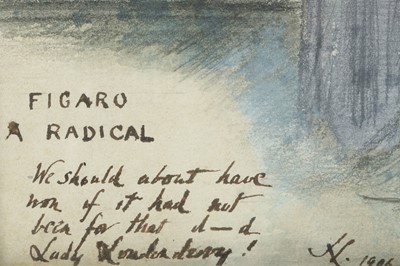 FIGARO
A RADICAL
We should about have
won if it had not
been for that d—d
Lady Londonderry!